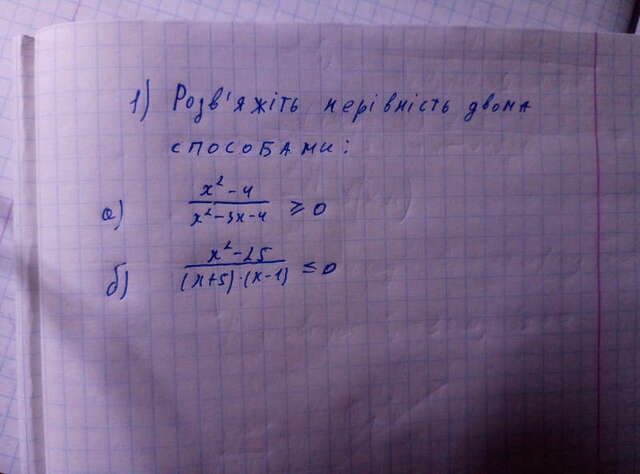 1) Розв'яжіть нерівність двома
способами:
а) x²-4 / x²-3x-4 ≥ 0
б) x²-25 / (x+5)·(x-1) ≤ 0